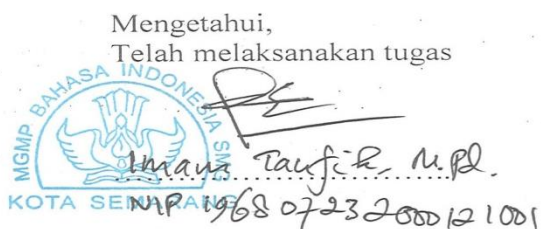 Mengetahui,
Telah melaksanakan tugas
MGMP BAHASA INDONESIA SMP
KOTA SEMARANG
Imam Taufik, M.Pd.
NIP 19680723 200012 1001